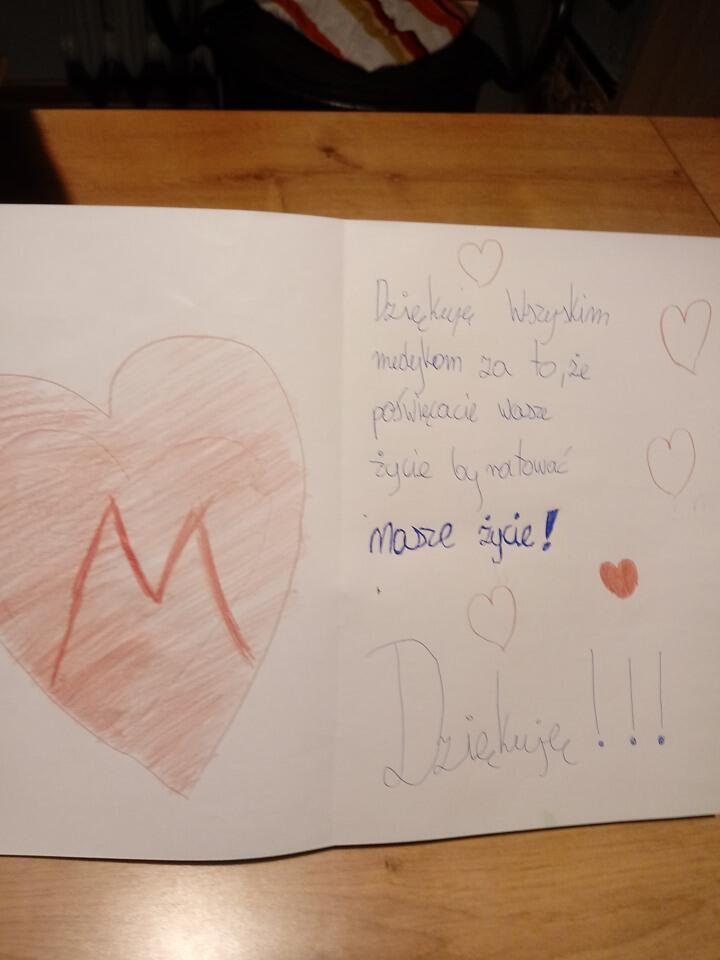 M
Dziękuję Wszyskim
medykom za to, że
poświęcacie wasze
życie by ratować
nasze życie!
Dziękuję!!!